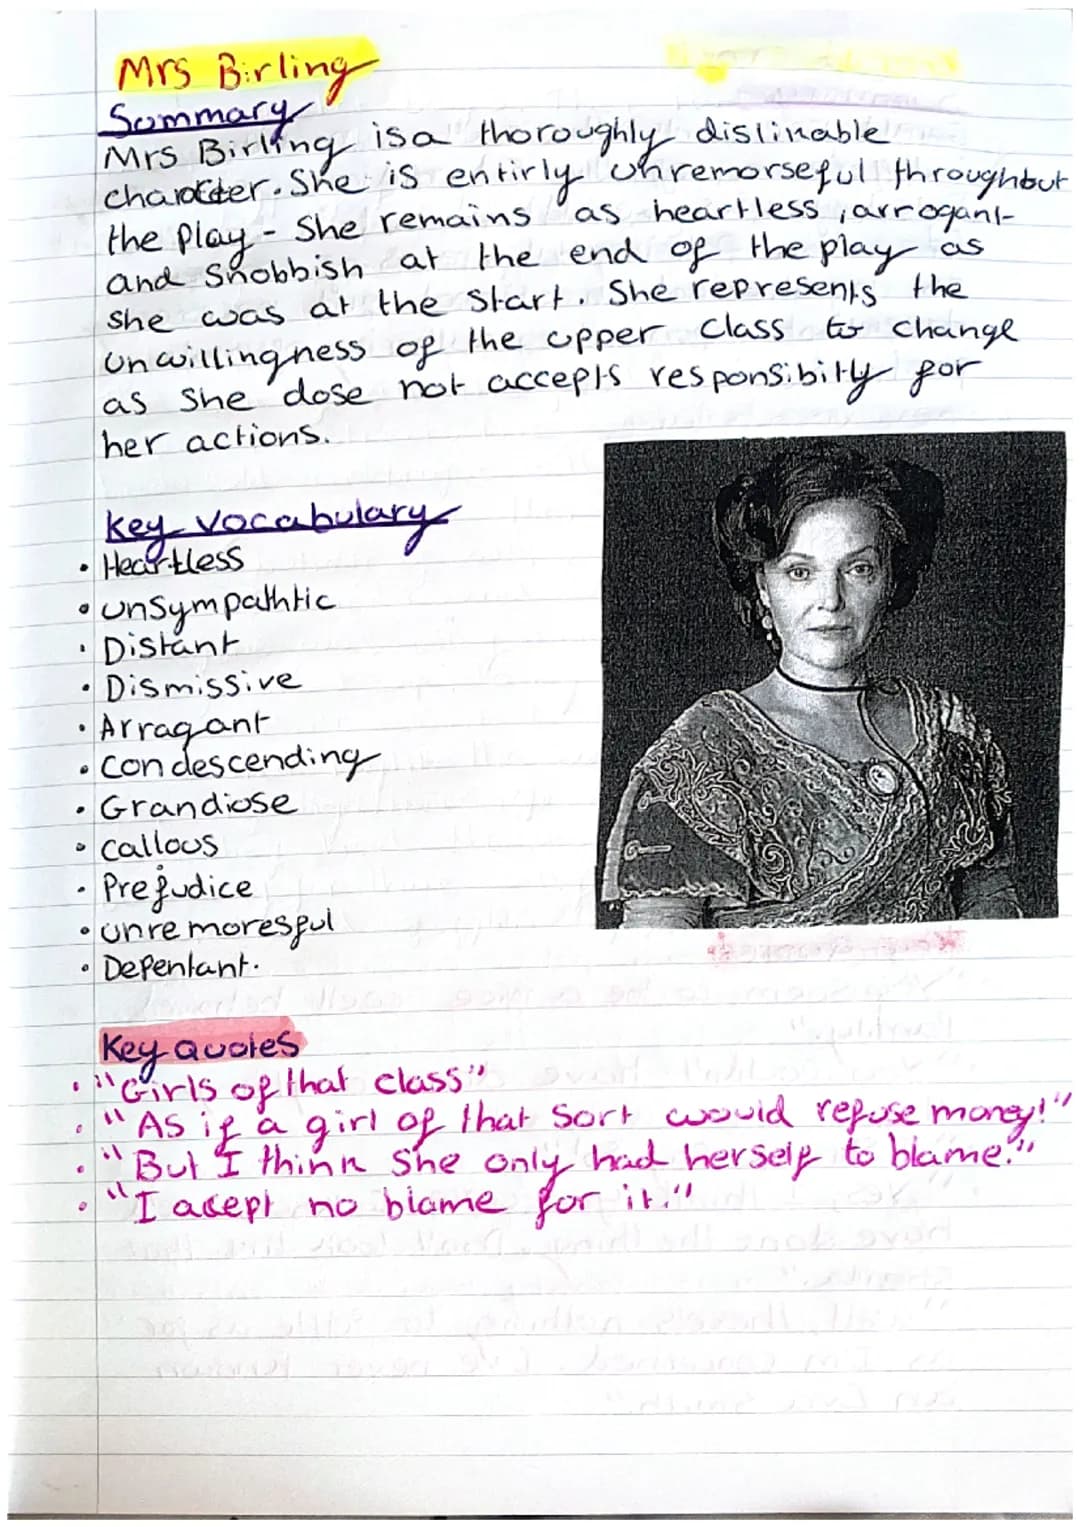 Mrs Birling
Summary
Mrs Birling is a thoroughly dislinable
character. She is entirly unremorseful throughout
the play - She remains as heartless, arrogant
and Snobbish at the end of the play as
she was at the Start. She represents the
unwillingness of the upper class to change
as She dose not accepts responsibitly for
her actions.
Key Vocabulary
• Heartless
• unsympathtic
• Distant
• Dismissive
• Arragant
• Condescending
• Grandiose
• callous
• Prejudice
• unremoresful
• Defentant.
Key Quotes
• "Girls of that class"
• "As if a girl of that Sort would refuse money!"
• "But I think She only had herself to blame."
• "I acept no blame for it."